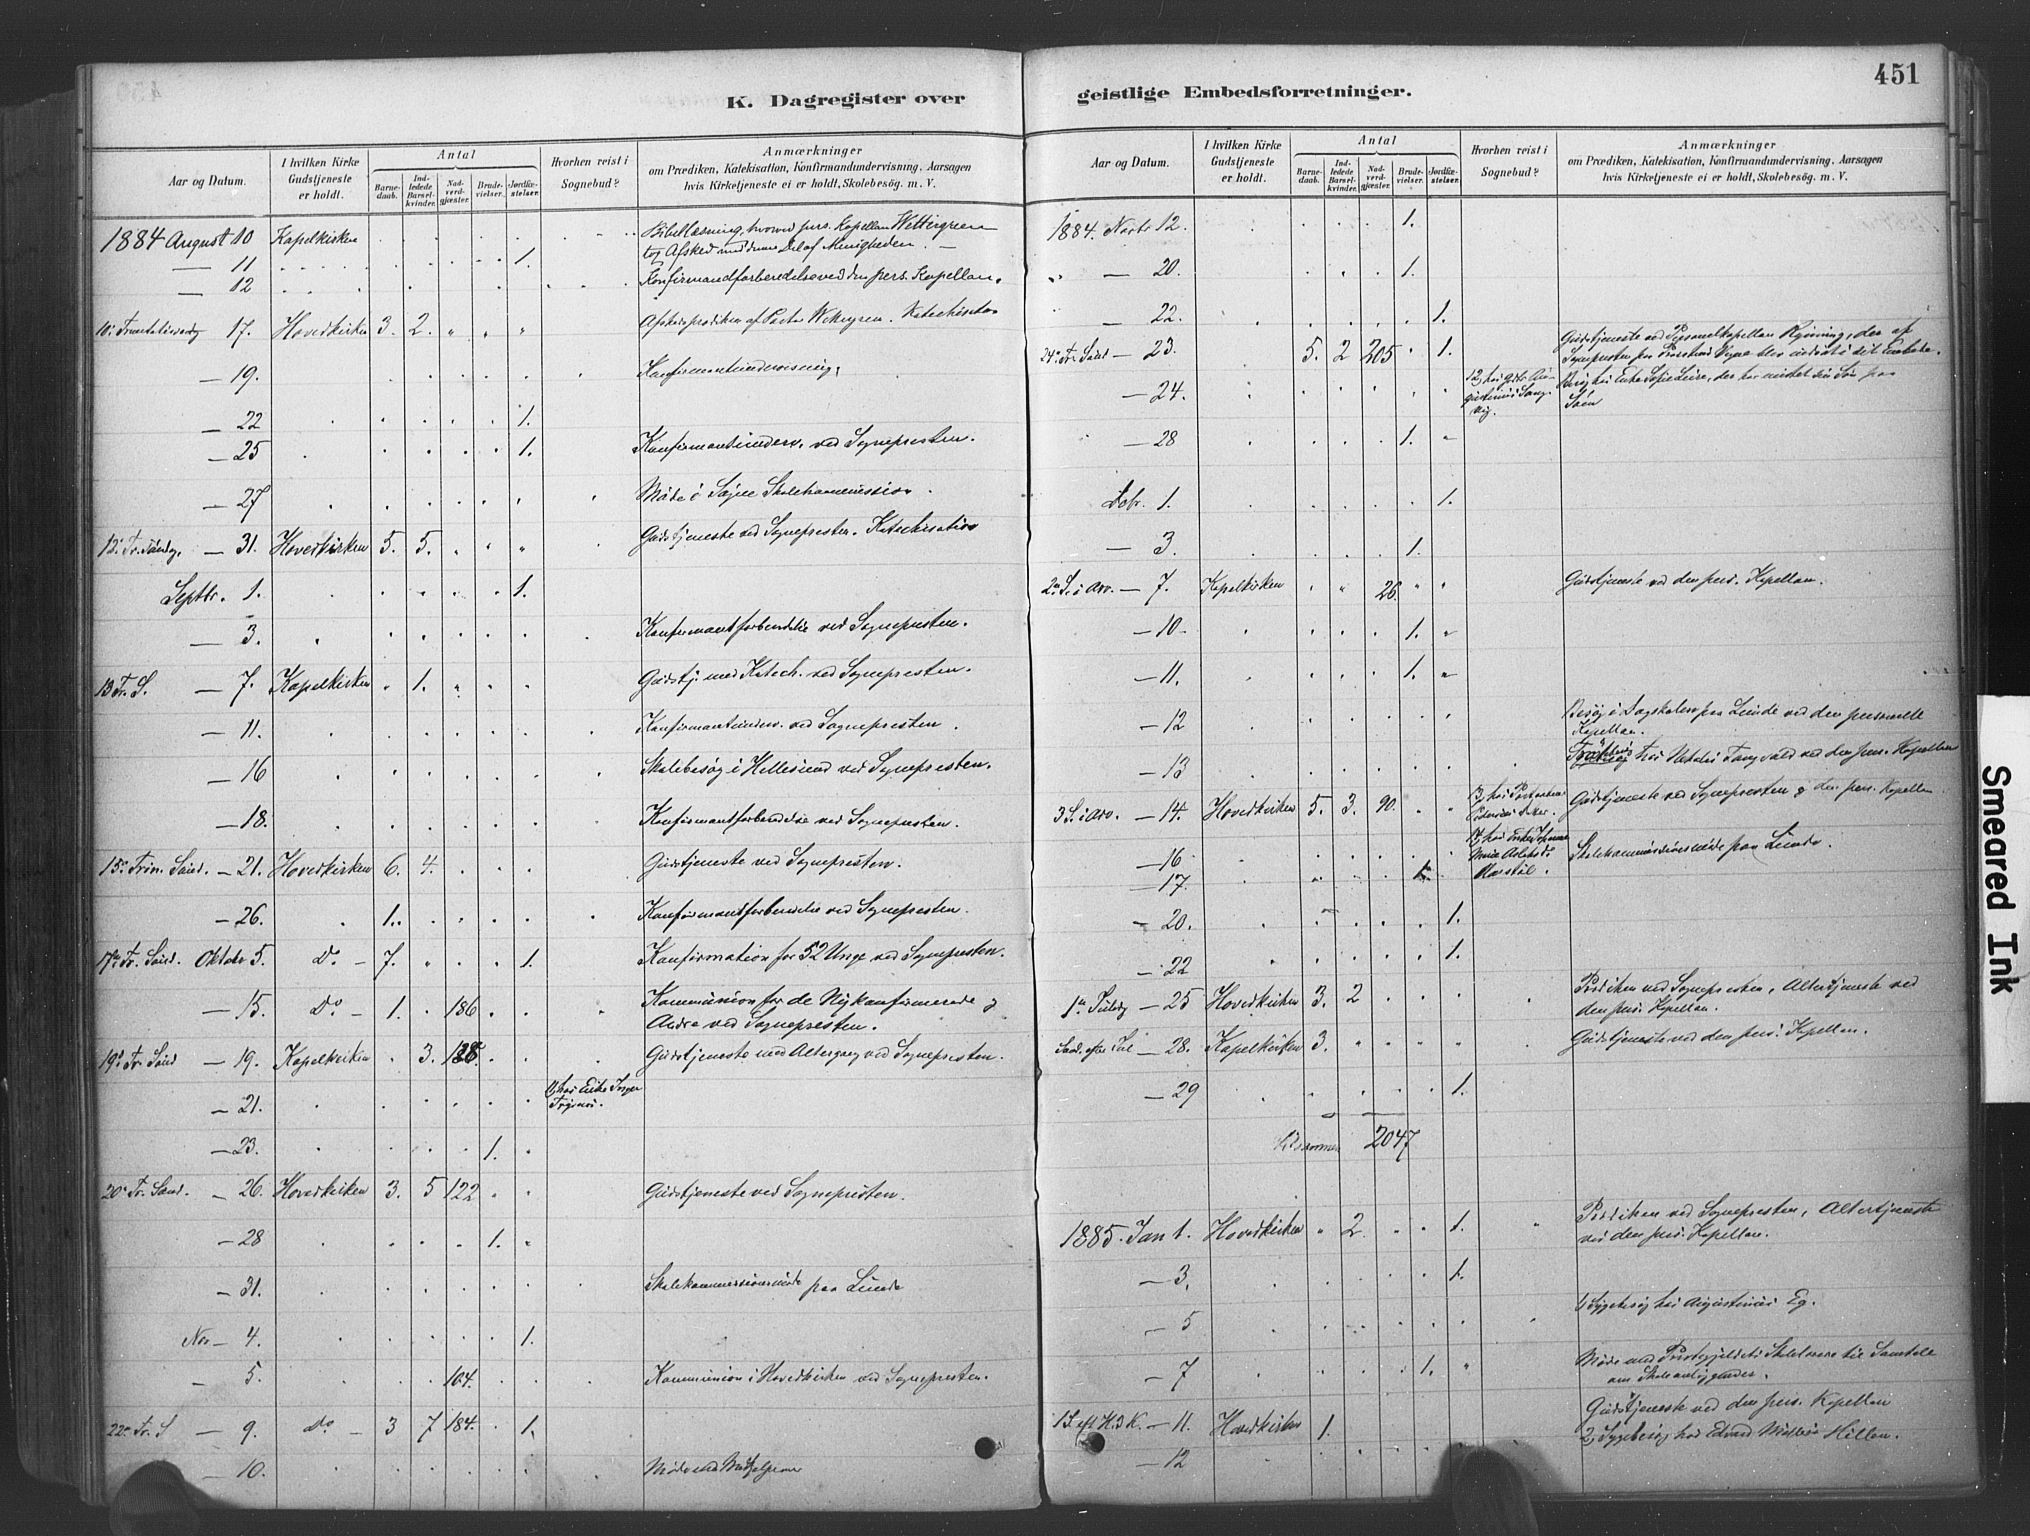 K. Dagregister over
Aar og Datum.
I hvilken Kirke Gudstjeneste er holdt.
Antal
Barnedaab.
Indledede Barselkvinder.
Nadverdgjæster.
Brudevielser.
Jordfæstelser.
Hvorhen reist i Sognebud?
Anmærkninger
om Prædiken, Katekisation, Konfirmandundervisning, Aarsagen
hvis Kirketjeneste ei er holdt, Skolebesøg. m. V.
1884 August 10 Kapelkirken Bibellæsning, hvorved pers. Kapellan Wettergreen
— 11 1. tog Afsked med denne Del af Menigheden. —
— 12 Konfirmandforberedelse ved den pers. Kapellan.
17. Hovedkirken 3. 2. Afskedsprædiken af Pastor Wettergren. Katechisation
— 19. Konfirmantundervisning.
— 22 1.
— 25 1. Konfirmantunderv. ved Sognepresten.
— 27 Møde i Søgne Skolekommission.
12. Tr. Søndg. — 31. Hovedkirken 5. 5. Gudstjeneste ved Sognepresten. Katechisation
Septbr. 1. 1.
— 3. Konfirmantforberedelse ved Sognepresten.
13 Tr. S. — 7. Kapelkirken 1. Gudstj. med Katech. ved Sognepresten.
— 11. Konfirmantunderv. ved Sognepresten.
— 16 Skolebesøg i Hellesund ved Sognepresten.
— 18. Konfirmantforberedelse ved Sognepresten.
15de Trin. Sønd. — 21. Hovedkirken 6. 4. Gudstjeneste ved Sognepresten.
— 26. 1. Konfirmantforberedelse ved Sognepresten.
17de Tr. Sønd. Oktobr 5. Do — 7. 1. Konfirmation for 52 Unge ved Sognepresten.
— 15. Do — 1. 186 Kommunion for de Nykonfirmerede og
Andre ved Sognepresten.
19. Tr. Sønd — 19. Kapelkirken 3. Gudstjeneste med Altergang ved Sognepresten.
— 21. hos Enke Inger
— 23. 1.
20. Tr. Sønd. — 26. Hovedkirken 3. 5 122 Gudstjeneste ved Sognepresten.
— 28 1.
— 31. Skolekommissionsmøde paa Lunde
Nov — 4. 1.
— 5. 104. Kommunion i Hovedkirken ved Sognepresten.
22de Tr. S — 9. Do — 3 7 184. 1.
— 10. Møde
geistlige Embedsforretninger.
451
Aar og Datum.
I hvilken Kirke Gudstjeneste er holdt.
Antal
Barnedaab.
Indledede Barselkvinder.
Nadverdgjæster.
Brudevielser.
Jordfæstelser.
Hvorhen reist i Sognebud?
Anmærkninger
om Prædiken, Katekisation, Konfirmandundervisning, Aarsagen
hvis Kirketjeneste ei er holdt, Skolebesøg. m. V.
1884. Novbr 12. 1.
— 20. 1.
— 22. 1.
24. Tr. Sønd — 23. 5. 2 205 1. Gudstjeneste ved Personelkapellan Ryining, der af
Sognepresten paa Provstens Vegne blev indsat i sit Embede.
— 24. Besøg hos Enke Sofie der har mistet sin Søn paa
Søen
— 28 1.
Dcbr. 1. 1.
— 3. 1.
2. S. i Adv. — 7. Kapelkirken 26. Gudstjeneste ved den pers. Kapellan.
— 10 1.
— 11. 1.
— 12 Besøg i Dagskolen paa Lunde ved den personelle
Kapellan.
— 13 hos ved den pers. Kapellan
3 S. i Adv. — 14. Hovedkirken 5. 3. 90. Gudstjeneste ved Sognepresten og den pers. Kapellan.
— 16 Skolekommissionsmøde paa Lunde.
— 17. 1.
— 20. 1.
— 22 1.
1ste Juledg — 25 Hovedkirken 3. 2 Prediken ved Sognepresten, Altertjeneste ved
den pers. Kapellan.
Sønd. efter Jul — 28. Kapelkirken 3. Gudstjeneste ved den pers. Kapellan.
— 29 1.
Tilsammen 2047
1885. Jan 1. Hovedkirken 2 1. Prediken ved Sognepresten, Altertjeneste
ved den pers. Kapellan.
— 3. 1.
— 5 Sygebesøg hos Augustinus Eg.
— 7 1. Møde med Prestegjeldets Skolelærere til Samtale
om Skoleanliggender.
1 S. eft H 3 K. — 11. Hovedkirken 1. Gudstjeneste ved den pers. Kapellan
— 12 2, Sygebesøg hos Edvard
Smeared Ink